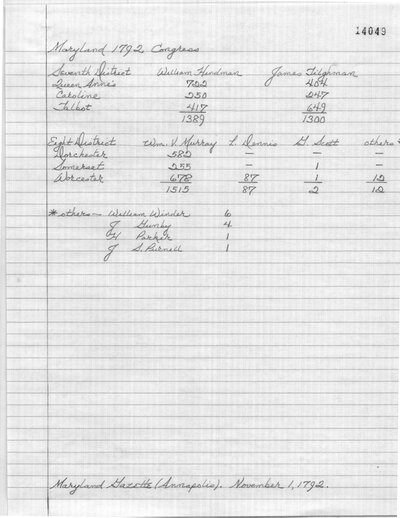 14049
Maryland 1792 Congress
Seventh District William Hindman James Tilghman
Queen Anne's 722 404
Caroline 250 247
Talbot 417 649
1389 1300
Eight District Wm. V. Murray L. Dennis G. Scott others *
Dorchester 582 — — —
Somerset 255 — 1 —
Worcester 678 87 1 12
1515 87 2 12
* others — William Winder 6
J Gunby 4
H Parker 1
J S. Purnell 1
Maryland Gazette (Annapolis). November 1, 1792.